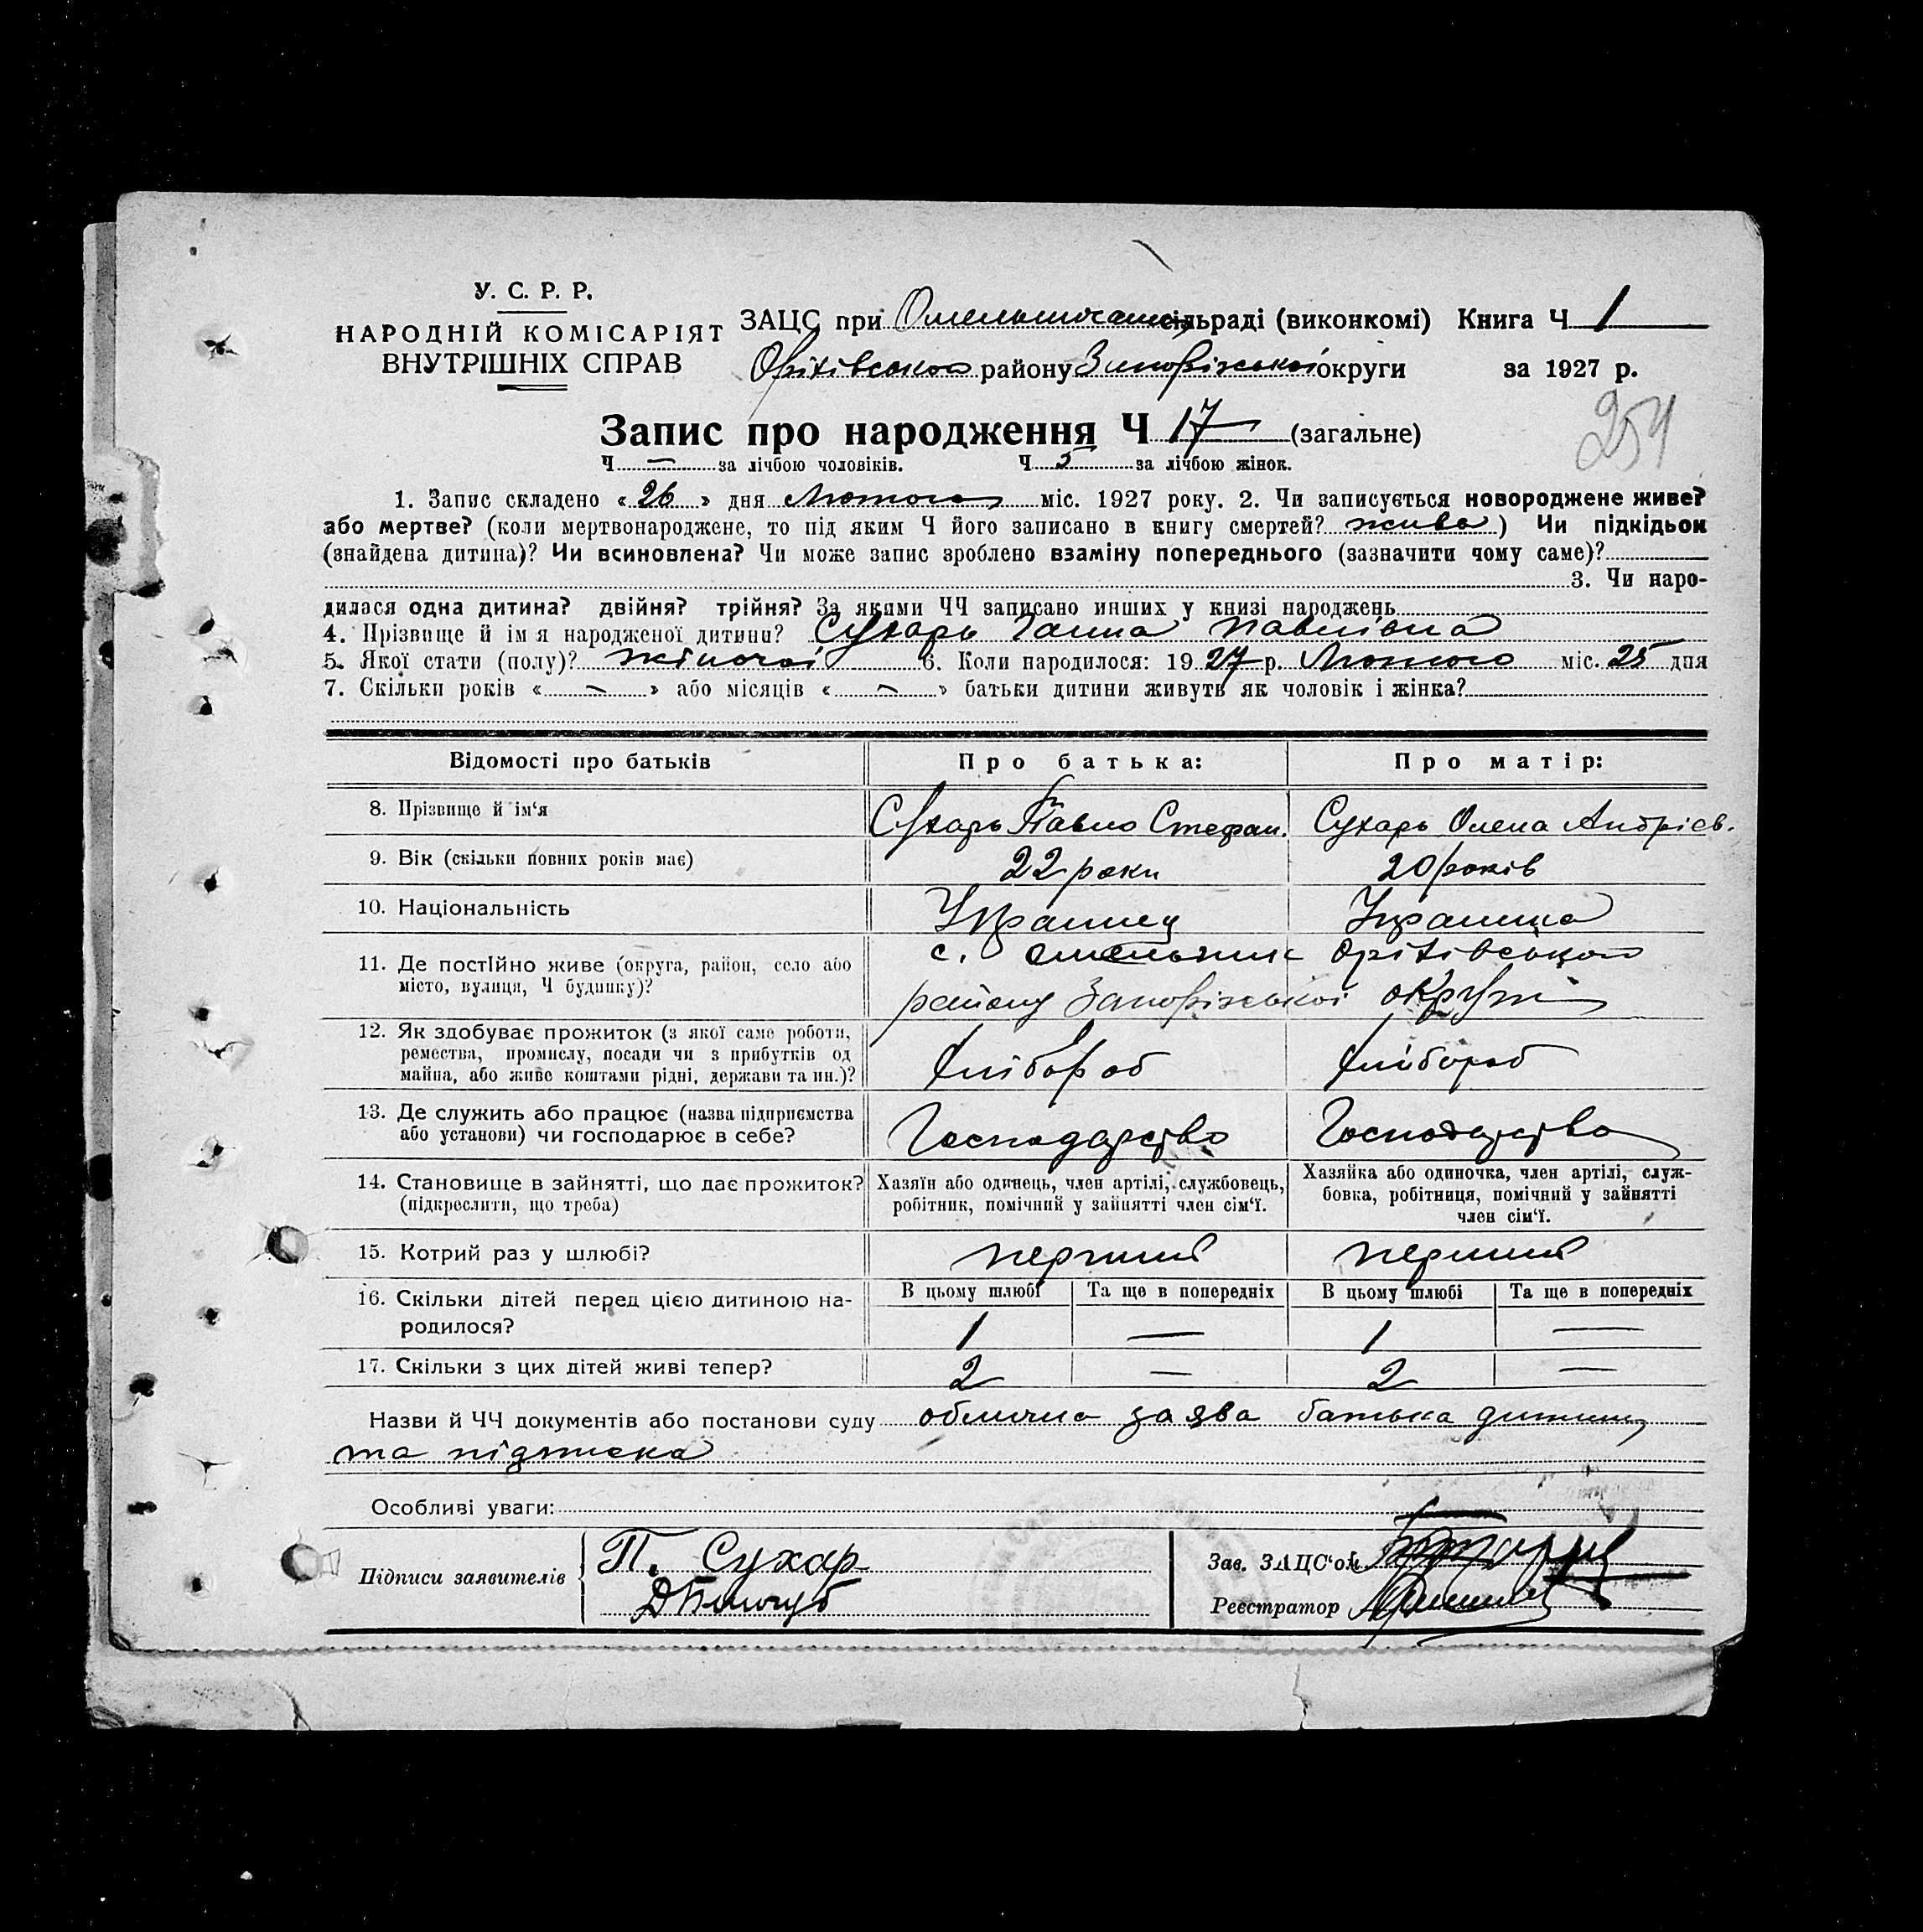 У. С. Р. Р.
НАРОДНІЙ КОМІСАРІЯТ
ВНУТРІШНІХ СПРАВ
ЗАЦС при сільраді (виконкомі) Книга Ч 1
Оріхівського району Запорізької округи за 1927 р.
254
Запис про народження Ч 17 (загальне)
Ч — за лічбою чоловіків. Ч 5 за лічбою жінок.
1. Запис складено « 26 » дня Лютого міс. 1927 року. 2. Чи записується новороджене живе?
або мертве? (коли мертвонароджене, то під яким Ч його записано в книгу смертей? живе) Чи підкідьок
(знайдена дитина)? Чи всиновлена? Чи може запис зроблено взаміну попереднього (зазначити чому саме)?
3. Чи наро-
дилася одна дитина? двійня? трійня? За якими ЧЧ записано инших у книзі народжень
4. Прізвище й ім я народженої дитини? Сухарь Ганна Павлівна
5. Якої стати (полу)? жіночої 6. Коли народилося: 19 27 р. Лютого міс. 25 дня
7. Скільки років « — » або місяців « — » батьки дитини живуть як чоловік і жінка?
Відомості про батьків Про батька: Про матір:
8. Прізвище й ім‘я Сухарь Павло Стефан. Сухарь Олена Андрієв.
9. Вік (скільки повних років має) 22 роки 20 років
10. Національність Українец Українка
11. Де постійно живе (округа, район, село або
місто, вулиця, Ч будинку)?
с. Омельник Оріхівського
району Запорізької округи
12. Як здобуває прожиток (з якої саме роботи,
ремества, промислу, посади чи з прибутків од
майна, або живе коштами рідні, держави та ин.)?
Хлібороб Хлібороб
13. Де служить або працює (назва підприємства
або установи) чи господарює в себе?
Господарство Господарство
14. Становище в зайнятті, що дає прожиток?
(підкреслити, що треба)
Хазяїн або одинець, член артілі, службовець,
робітник, помічний у зайнятті член сім‘ї.
Хазяйка або одиночка, член артілі, служ-
бовка, робітниця, помічний у зайнятті
член сім‘ї.
15. Котрий раз у шлюбі? перший перший
16. Скільки дітей перед цією дитиною на-
родилося?
В цьому шлюбі Та ще в попередніх В цьому шлюбі Та ще в попередніх
1 — 1 —
17. Скільки з цих дітей живі тепер? 2 — 2 —
Назви й ЧЧ документів або постанови суду облична заява батька дитини
та підписка
Особливі уваги:
Підписи заявителів П. Сухар
Зав. ЗАЦС‘ом
Реєстратор